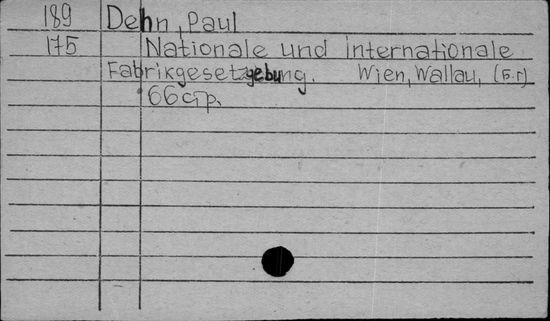 189 Dehn, Paul
175 Nationale und internationale
Fabrikgesetzgebung. Wien, Wallau, (б.г)
66 стр.